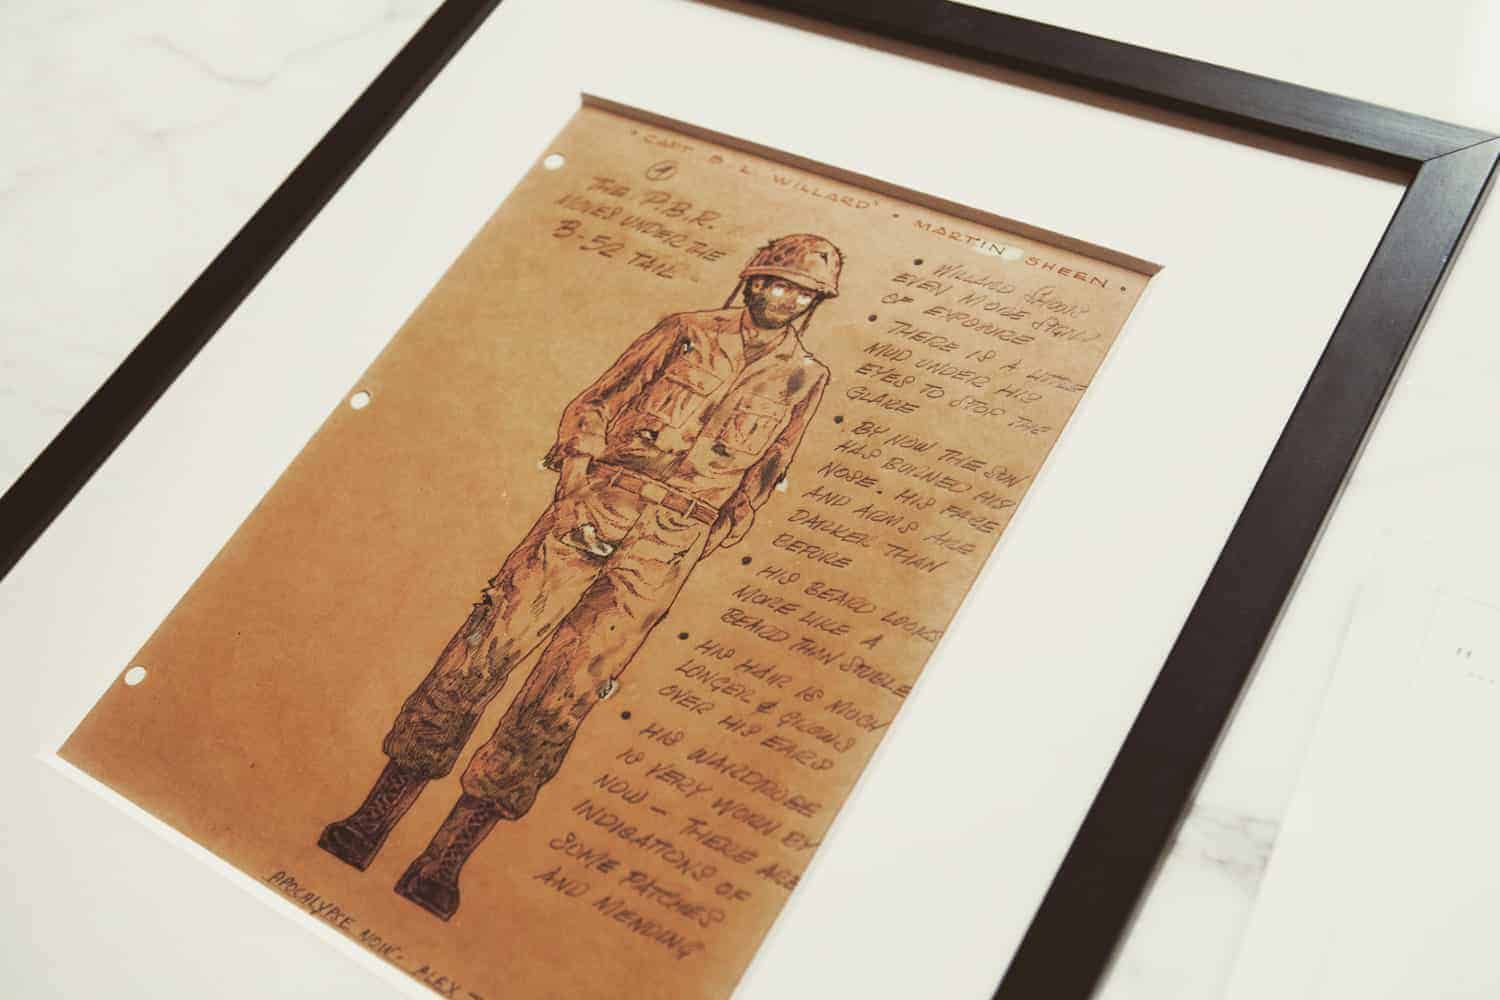 • "CAPT. B. L. WILLARD" • MARTIN SHEEN •
④
THE P.B.R.
MOVES UNDER THE
B-52 TAIL...
• WILLARD SHOWS
EVEN MORE SIGNS
OF EXPOSURE
• THERE IS A LITTLE
MUD UNDER HIS
EYES TO STOP THE
GLARE
• BY NOW THE SUN
HAS BURNED HIS
NOSE. HIS FACE
AND ARMS ARE
DARKER THAN
BEFORE
• HIS BEARD LOOKS
MORE LIKE A
BEARD THAN STUBLE
• HIS HAIR IS MUCH
LONGER & GROWS
OVER HIS EARS
• HIS WARDROBE
IS VERY WORN BY
NOW — THERE ARE
INDICATIONS OF
SOME PATCHES
AND MENDING
APOCALYPSE NOW. ALEX